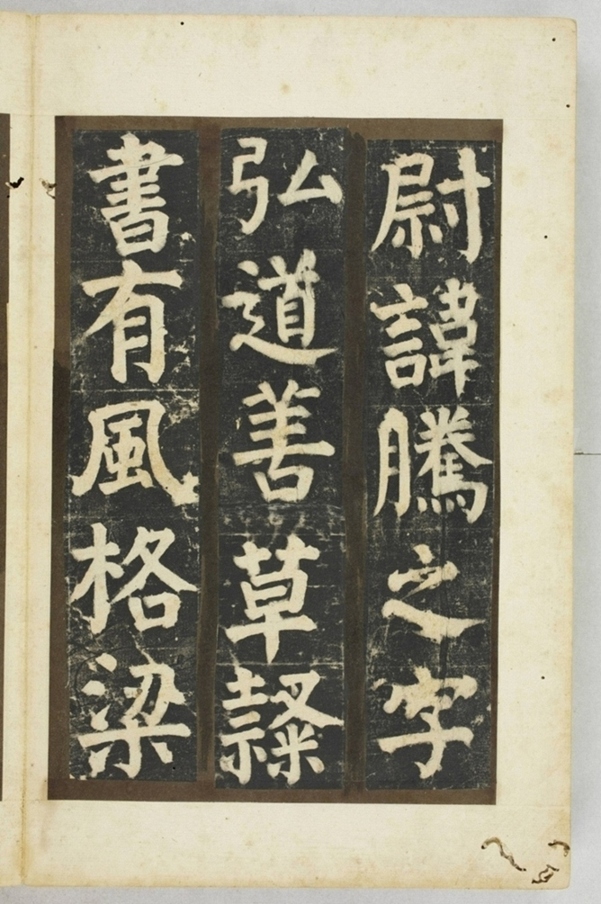 尉諱騰之字
弘道善草隸
書有風格梁